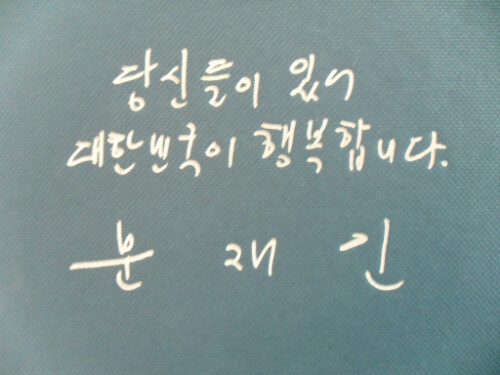 당신들이 있어
대한민국이 행복합니다.
문 재 인